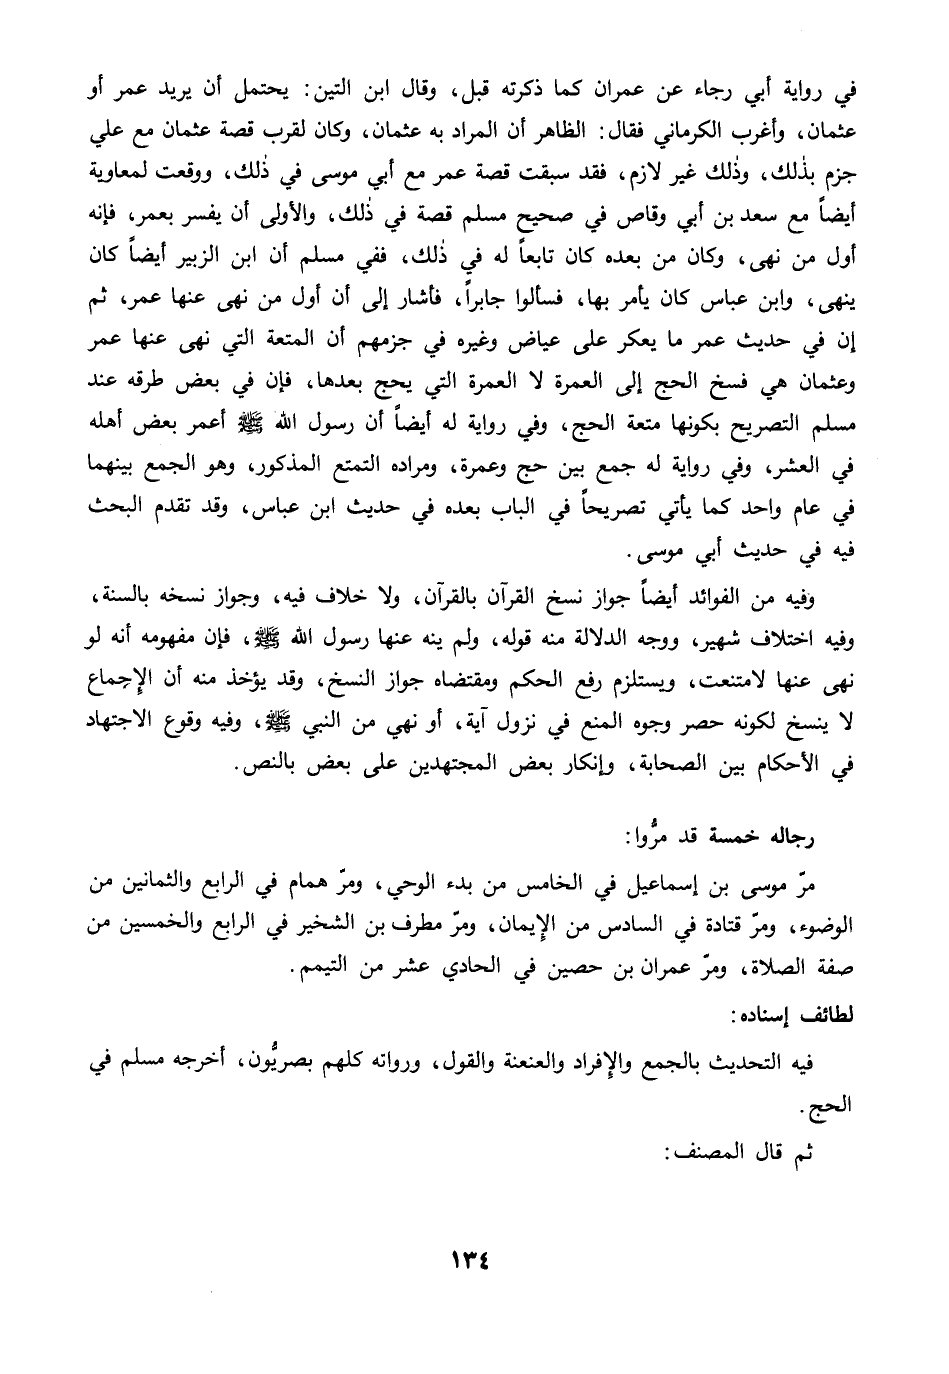 في رواية أبي رجاء عن عمران كما ذكرته قبل، وقال ابن التين: يحتمل أن يريد عمر أو
عثمان، وأغرب الكرماني فقال: الظاهر أن المراد به عثمان، وكان لقرب قصة عثمان مع علي
جزم بذٰلك، وذٰلك غير لازم، فقد سبقت قصة عمر مع أبي موسى في ذٰلك، ووقعت لمعاوية
أيضاً مع سعد بن أبي وقاص في صحيح مسلم قصة في ذٰلك، والأولى أن يفسر بعمر، فإنه
أول من نهى، وكان من بعده كان تابعاً له في ذٰلك، ففي مسلم أن ابن الزبير أيضاً كان
ينهى، وابن عباس كان يأمر بها، فسألوا جابراً، فأشار إلى أن أول من نهى عنها عمر، ثم
إن في حديث عمر ما يعكر على عياض وغيره في جزمهم أن المتعة التي نهى عنها عمر
وعثمان هي فسخ الحج إلى العمرة لا العمرة التي يحج بعدها، فإن في بعض طرقه عند
مسلم التصريح بكونها متعة الحج، وفي رواية له أيضاً أن رسول الله ﷺ أعمر بعض أهله
في العشر، وفي رواية له جمع بين حج وعمرة، ومراده التمتع المذكور، وهو الجمع بينهما
في عام واحد كما يأتي تصريحاً في الباب بعده في حديث ابن عباس، وقد تقدم البحث
فيه في حديث أبي موسى.
وفيه من الفوائد أيضاً جواز نسخ القرآن بالقرآن، ولا خلاف فيه، وجواز نسخه بالسنة،
وفيه اختلاف شهير، ووجه الدلالة منه قوله، ولم ينه عنها رسول الله ﷺ، فإن مفهومه أنه لو
نهى عنها لامتنعت، ويستلزم رفع الحكم ومقتضاه جواز النسخ، وقد يؤخذ منه أن الإجماع
لا ينسخ لكونه حصر وجوه المنع في نزول آية، أو نهي من النبي ﷺ، وفيه وقوع الاجتهاد
في الأحكام بين الصحابة، وإنكار بعض المجتهدين على بعض بالنص.
رجاله خمسة قد مرُّوا:
مرّ موسى بن إسماعيل في الخامس من بدء الوحي، ومرّ همام في الرابع والثمانين من
الوضوء، ومرّ قتادة في السادس من الإيمان، ومرّ مطرف بن الشخير في الرابع والخمسين من
صفة الصلاة، ومرّ عمران بن حصين في الحادي عشر من التيمم.
لطائف إسناده:
فيه التحديث بالجمع والإفراد والعنعنة والقول، ورواته كلهم بصريُّون، أخرجه مسلم في
الحج.
ثم قال المصنف:
١٣٤